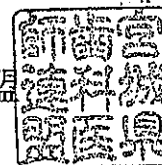 盟
宮城県
歯科医
師連盟